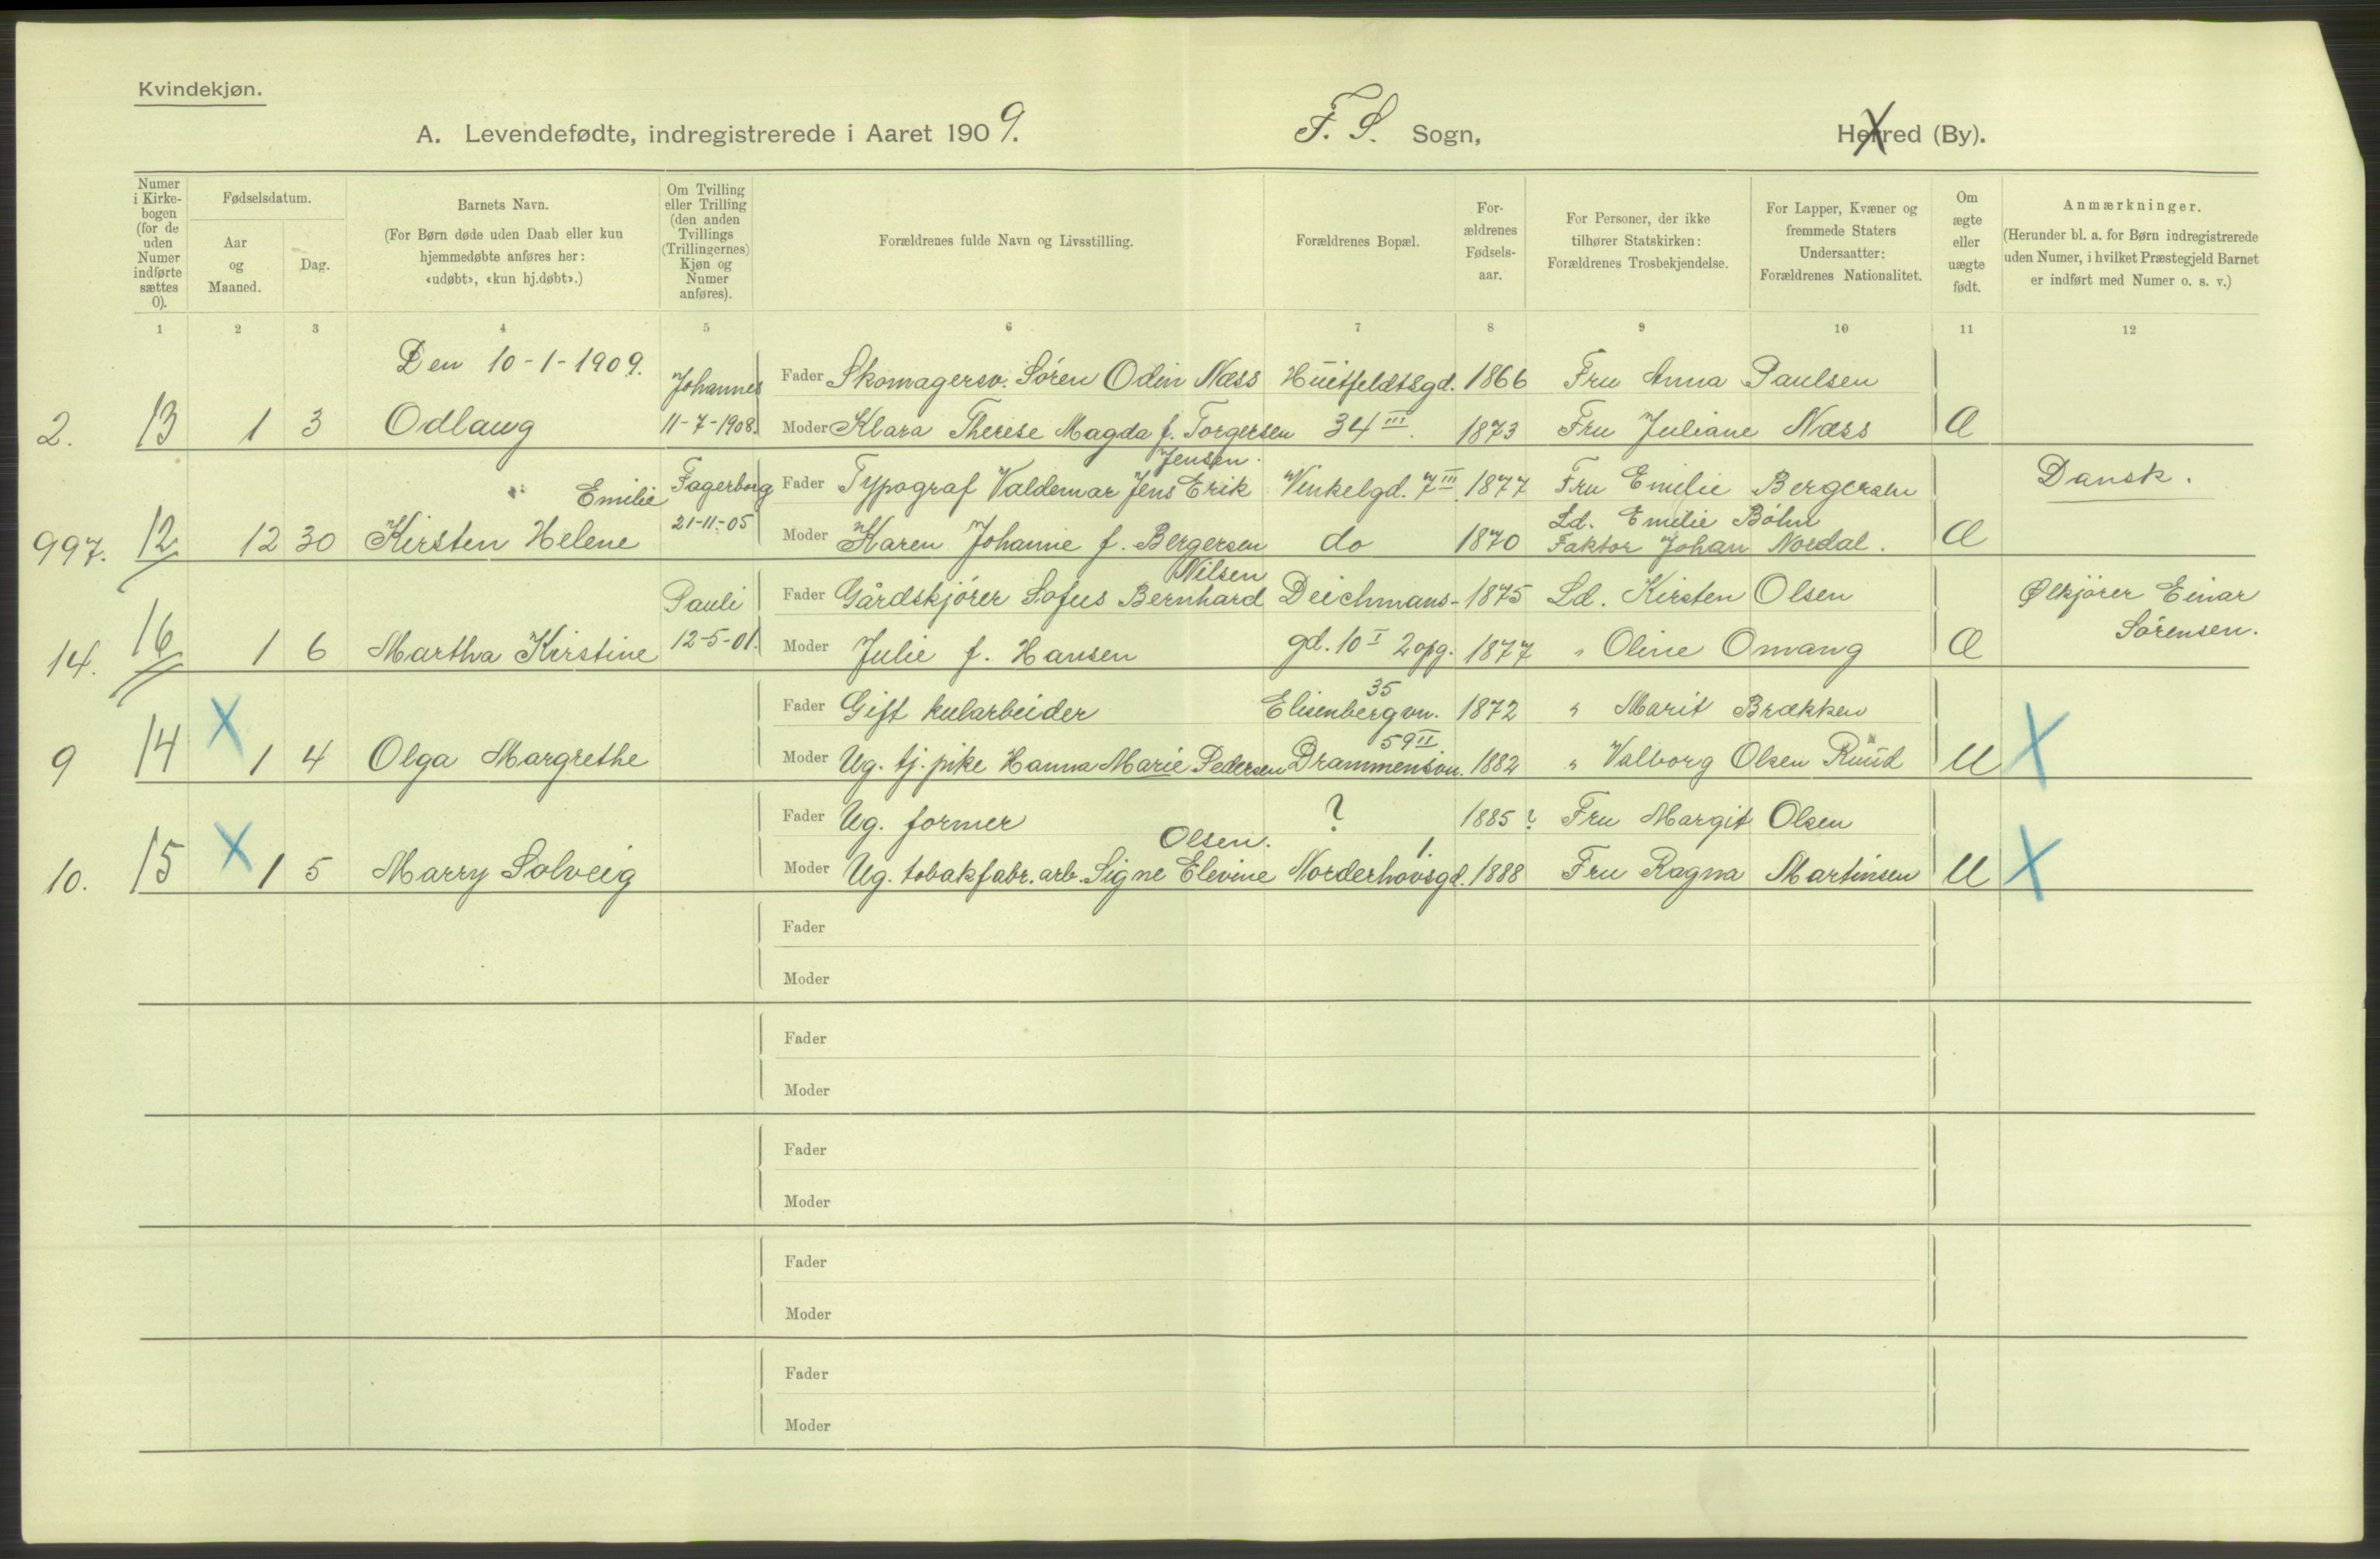 Kvindekjøn.
A. Levendefødte, indregistrerede i Aaret 1909. F. S. Sogn, Herred (By).
Numer i Kirke-bogen (for de uden Numer indførte sættes 0).
Fødselsdatum.
Aar og Maaned.
Dag.
Barnets Navn.
(For Børn døde uden Daab eller kun
hjemmedøbte anføres her:
«udøbt», «kun hj.døbt».)
Om Tvilling
eller Trilling
(den anden
Tvillings
(Trillingernes)
Kjøn og
Numer
anføres).
Forældrenes fulde Navn og Livsstilling.
Forældrenes Bopæl.
For-
ældrenes
Fødsels-
aar.
For Personer, der ikke
tilhører Statskirken:
Forældrenes Trosbekjendelse.
For Lapper, Kvæner og
fremmede Staters
Undersaatter:
Forældrenes Nationalitet.
Om
ægte
eller
uægte
født.
Anmærkninger.
(Herunder bl. a. for Børn indregistrerede
uden Numer, i hvilket Præstegjeld Barnet
er indført med Numer o. s. v.)
1 2 3 4 5 6 7 8 9 10 11 12
Den 10-1-1909.
Johannes Fader Skomagersv. Søren Odin Næss Huitfeldtsgd. 1866 Fru Anna Paulsen
2. 13 1 3 Odlaug 11-7-1908. Moder Klara Therese Magda f. Torgersen 34 III. 1873 Fru Juliane Næss Æ
Jensen.
Emilie Fagerborg Fader Typograf Valdemar Jens Erik Vinkelgd. 7 III. 1877 Fru Emilie Bergersen Dansk.
Ld. Emilie Bøhn
997. 12 12 30 Kirsten Helene 21-11-05 Moder Karen Johanne f. Bergersen do 1870 Faktor Johan Nordal. Æ
Nilsen
Pauli Fader Gårdskjører Sofus Bernhard Deichmans- 1875 Ld. Kirsten Olsen Ølkjører Einar
Sørensen.
14. 16 1 6 Martha Kirstine 12-5-01. Moder Julie f. Hansen gd. 10 I 2 opg. 1877 " Oline Omang Æ
35
Fader Gift kularbeider Elisenbergvn. 1872 " Marit Brækken
59 II
9 14 X 1 4 Olga Margrethe Moder Ug. tj. pike Hanna Marie Pedersen Drammensvn. 1882 " Valborg Olsen Ruud U X
Fader Ug. former ? 1885? Fru Margit Olsen
Olsen. 1.
10. 15 X 1 5 Marry Solveig Moder Ug. tobakfabr. arb. Signe Elevine Norderhovsgd. 1888 Fru Ragna Martinsen U X
Fader
Moder
Fader
Moder
Fader
Moder
Fader
Moder
Fader
Moder